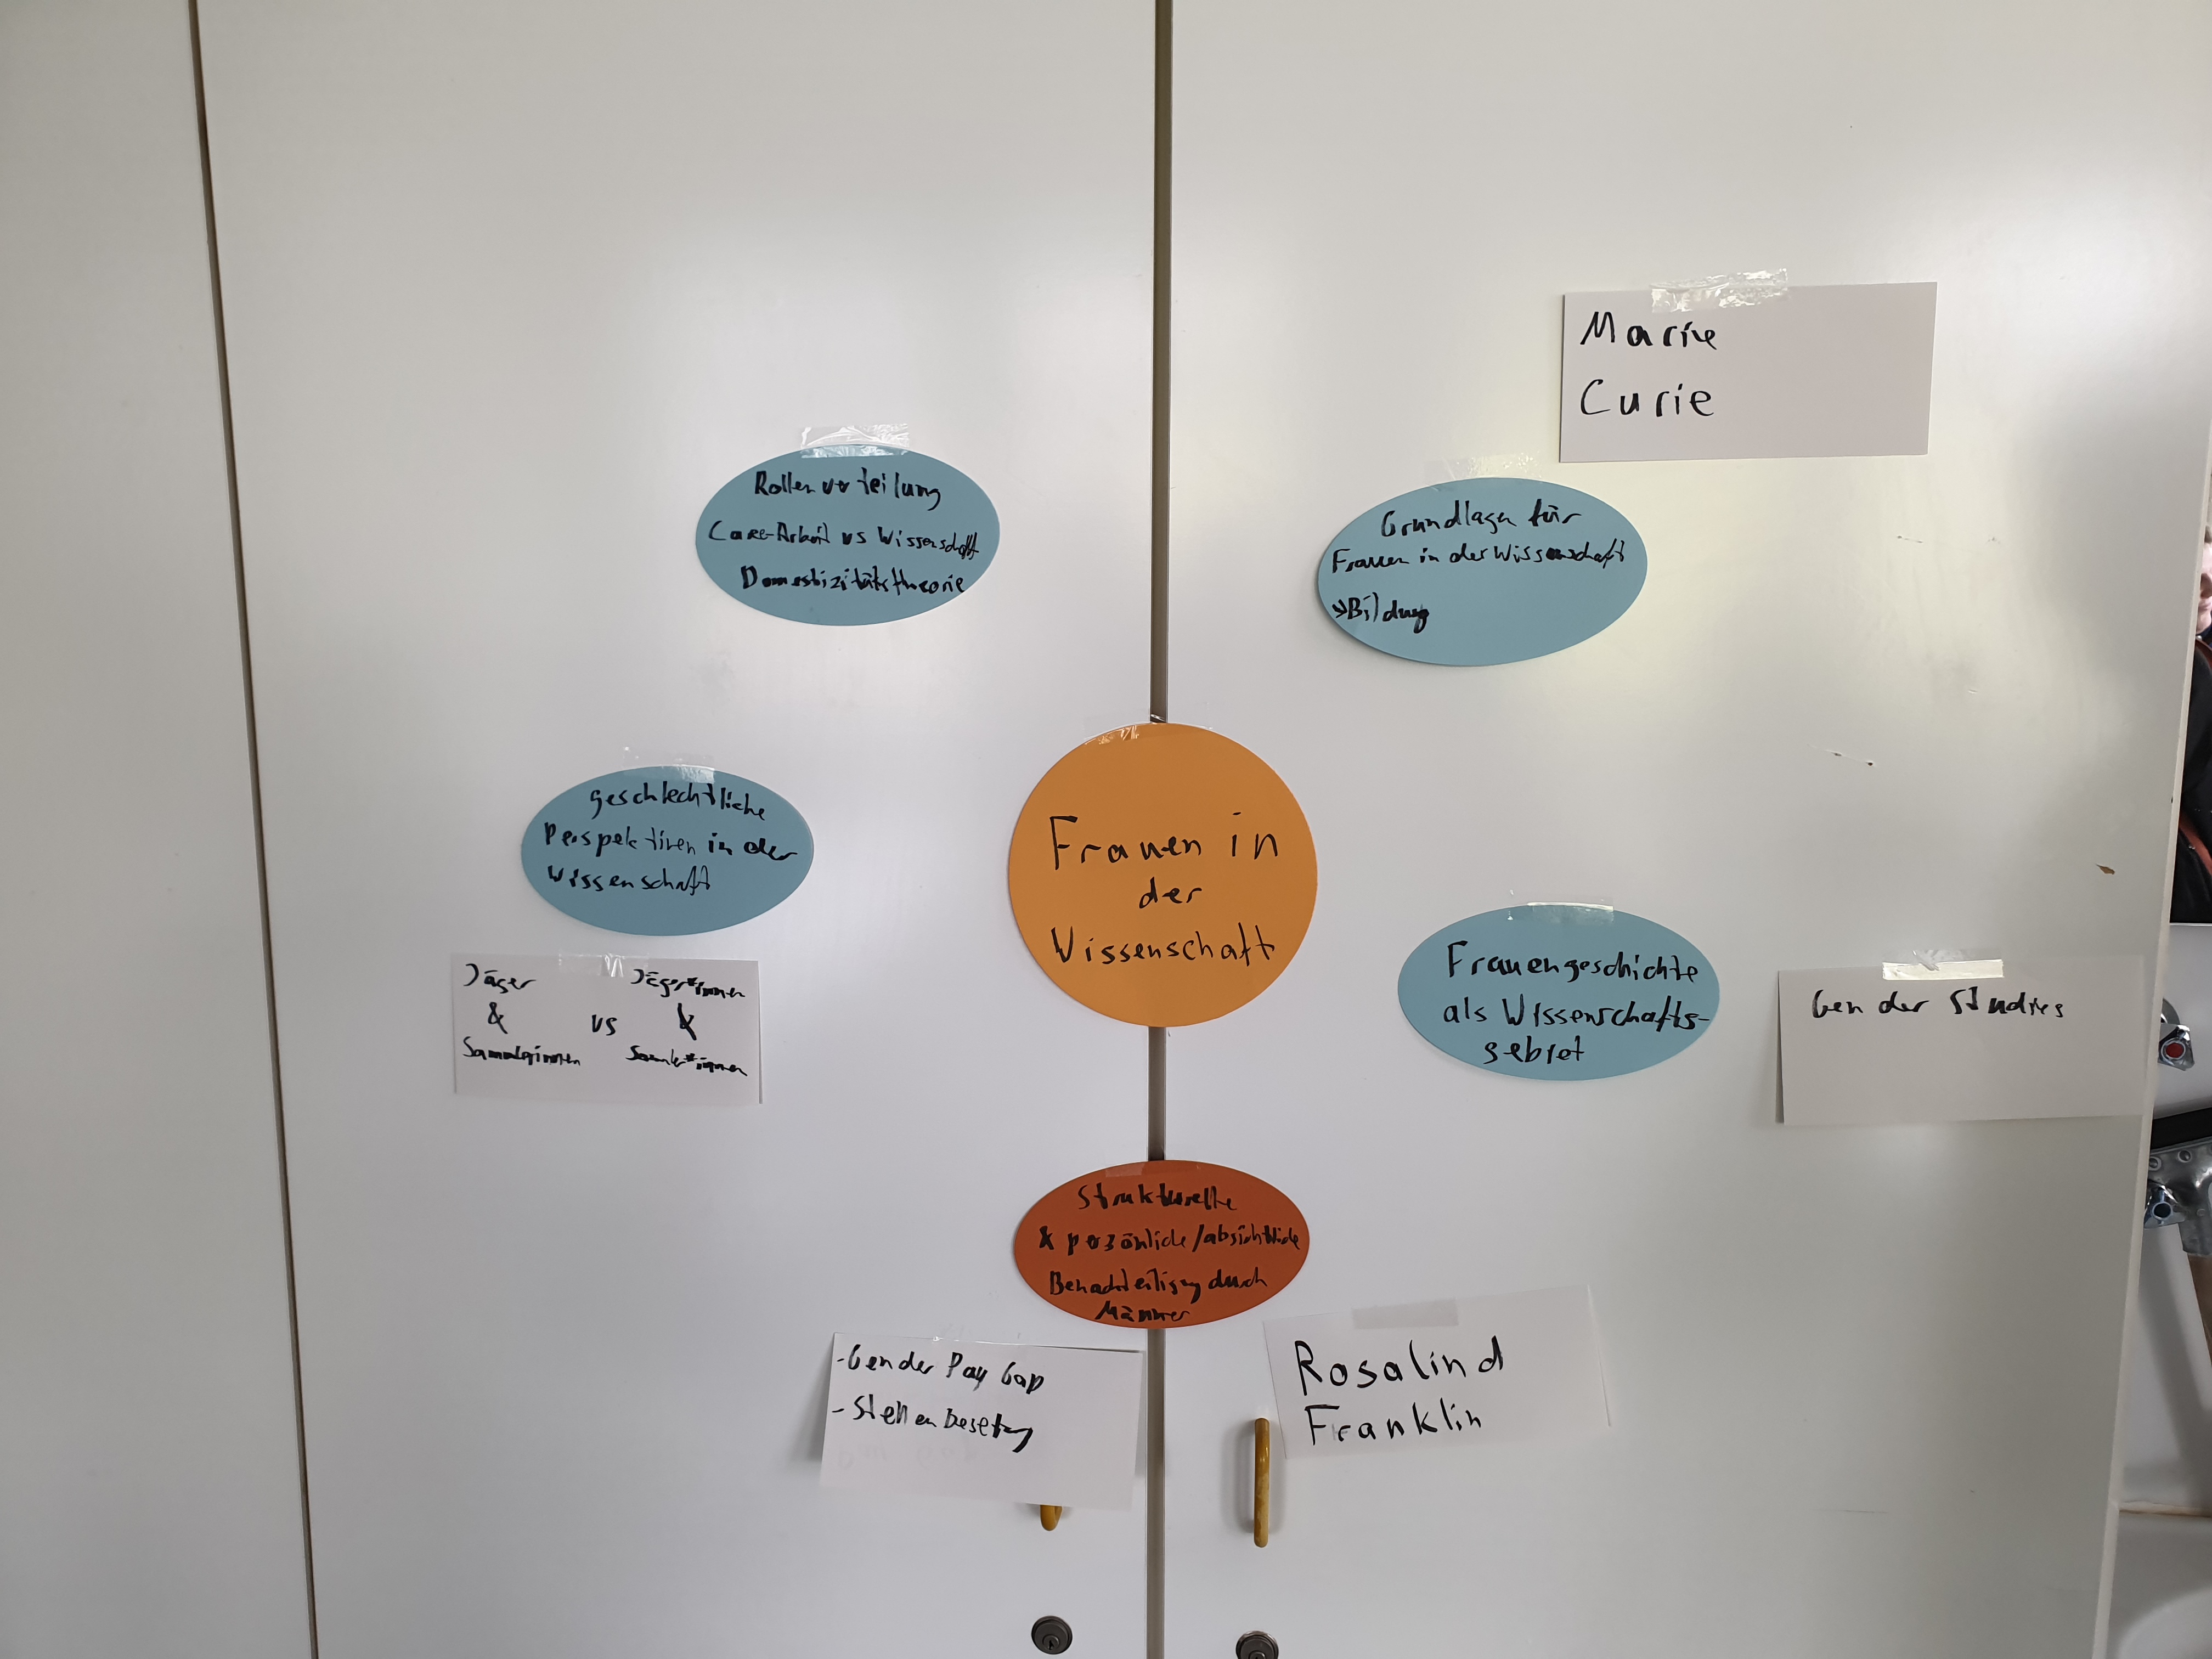 Marie
Curie
Rollenverteilung
Care-Arbeit vs Wissenschaft
Domestizitätstheorie
Grundlagen für
Frauen in der Wissenschaft
→Bildung
geschlechtliche
Perspektiven in der
Wissenschaft
Jäger
&
Sammlerinnen
vs
Jäger*innen
&
Sammler*innen
Frauen in
der
Wissenschaft
Frauengeschichte
als Wissenschafts-
gebiet
Gender Studies
Strukturelle
& persönliche/absichtliche
Benachteiligung durch
Männer
-Gender Pay Gap
-Stellenbesetzung
Rosalind
Franklin